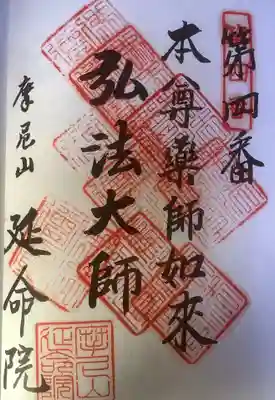 第四番
本尊薬師如來
弘法大師
摩尼山 延命院